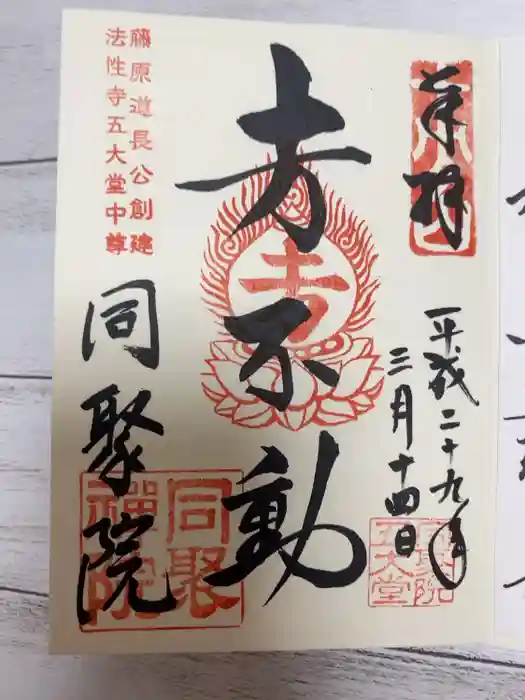 奉拝
平成二十九年
三月十四日
同聚院
五大堂
不動
藤原道長公創建
法性寺五大堂中尊
同聚院
同聚
禪院